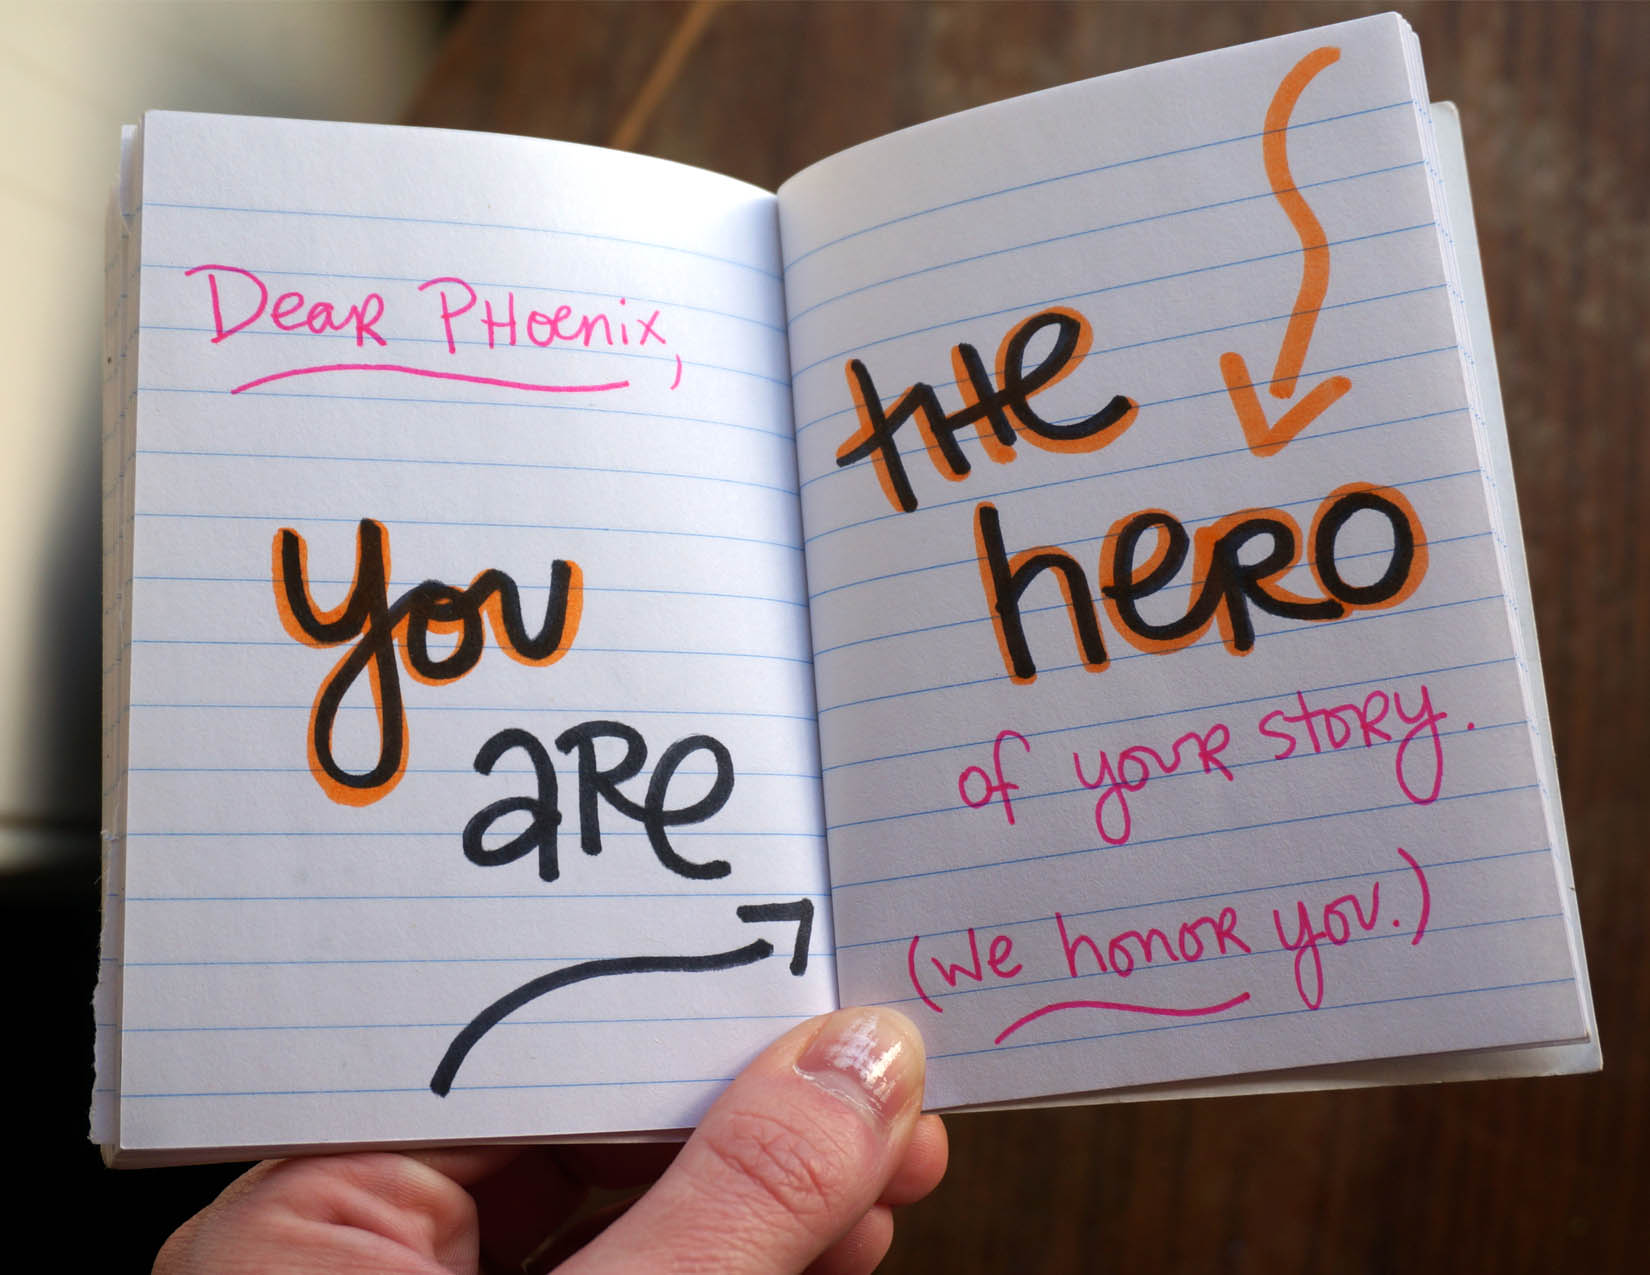 Dear Phoenix,
you
are
the
hero
of your story.
(we honor you.)